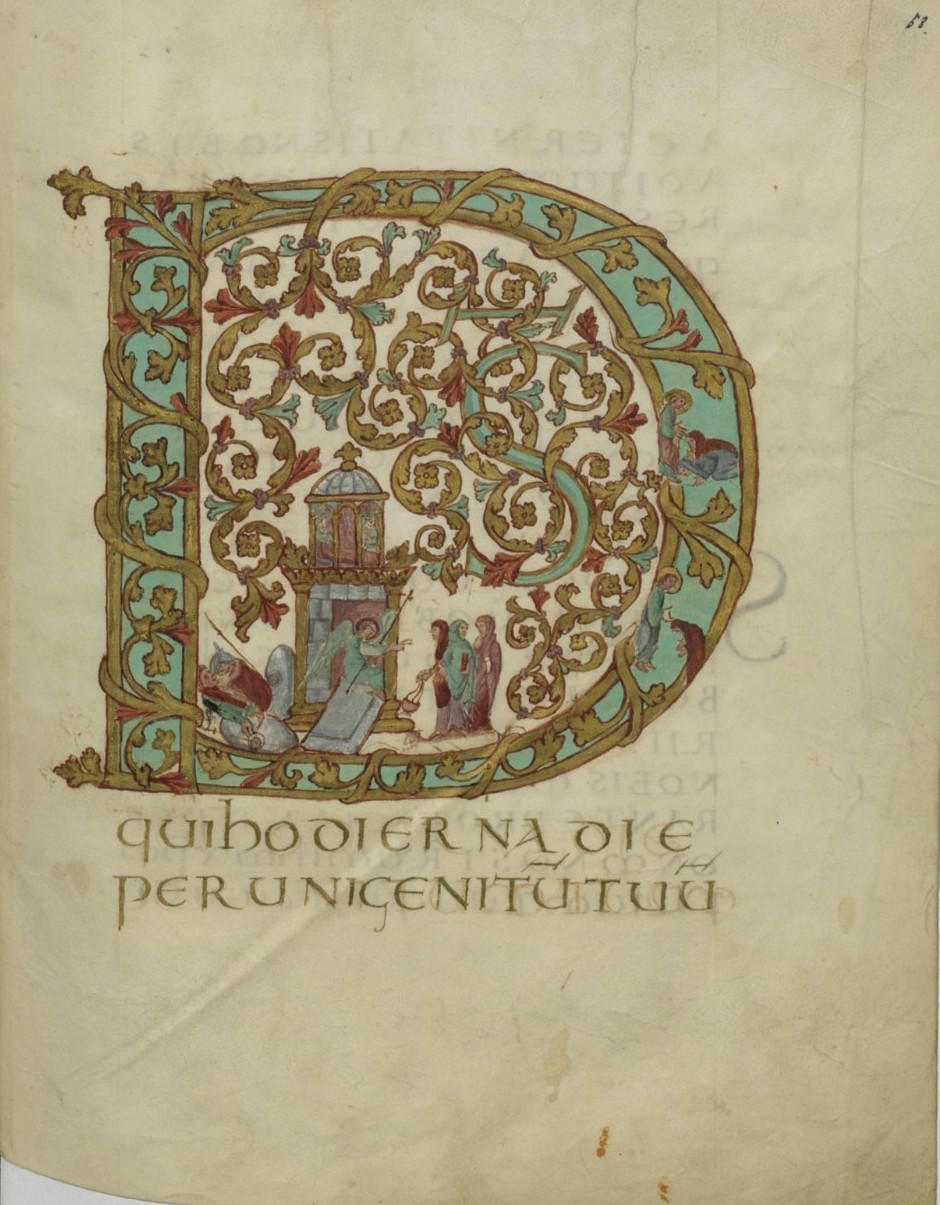 58.
DS̄
quihodierna die
perunigenitū tuū